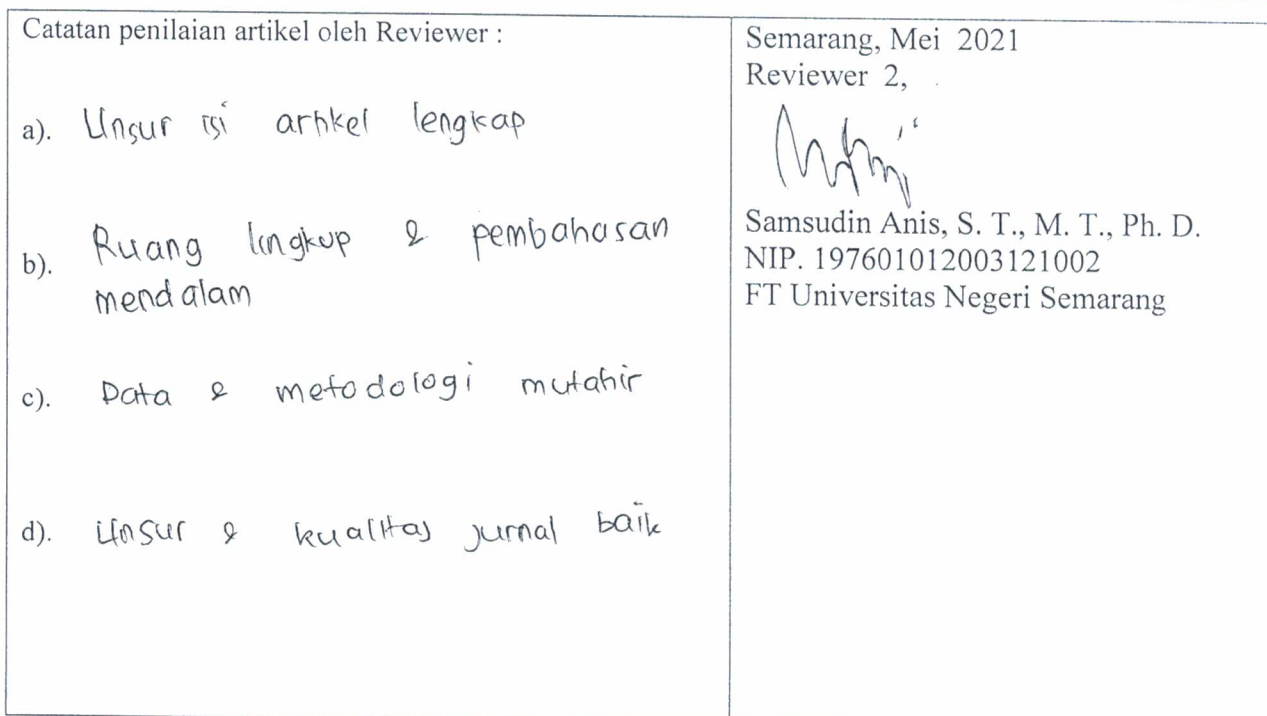 Catatan penilaian artikel oleh Reviewer :
a). Unsur isi artikel lengkap
b). Ruang lingkup & pembahasan
mendalam
c). Data & metodologi mutahir
d). Unsur & kualitas jurnal baik
Semarang, Mei 2021
Reviewer 2,
Samsudin Anis, S. T., M. T., Ph. D.
NIP. 197601012003121002
FT Universitas Negeri Semarang